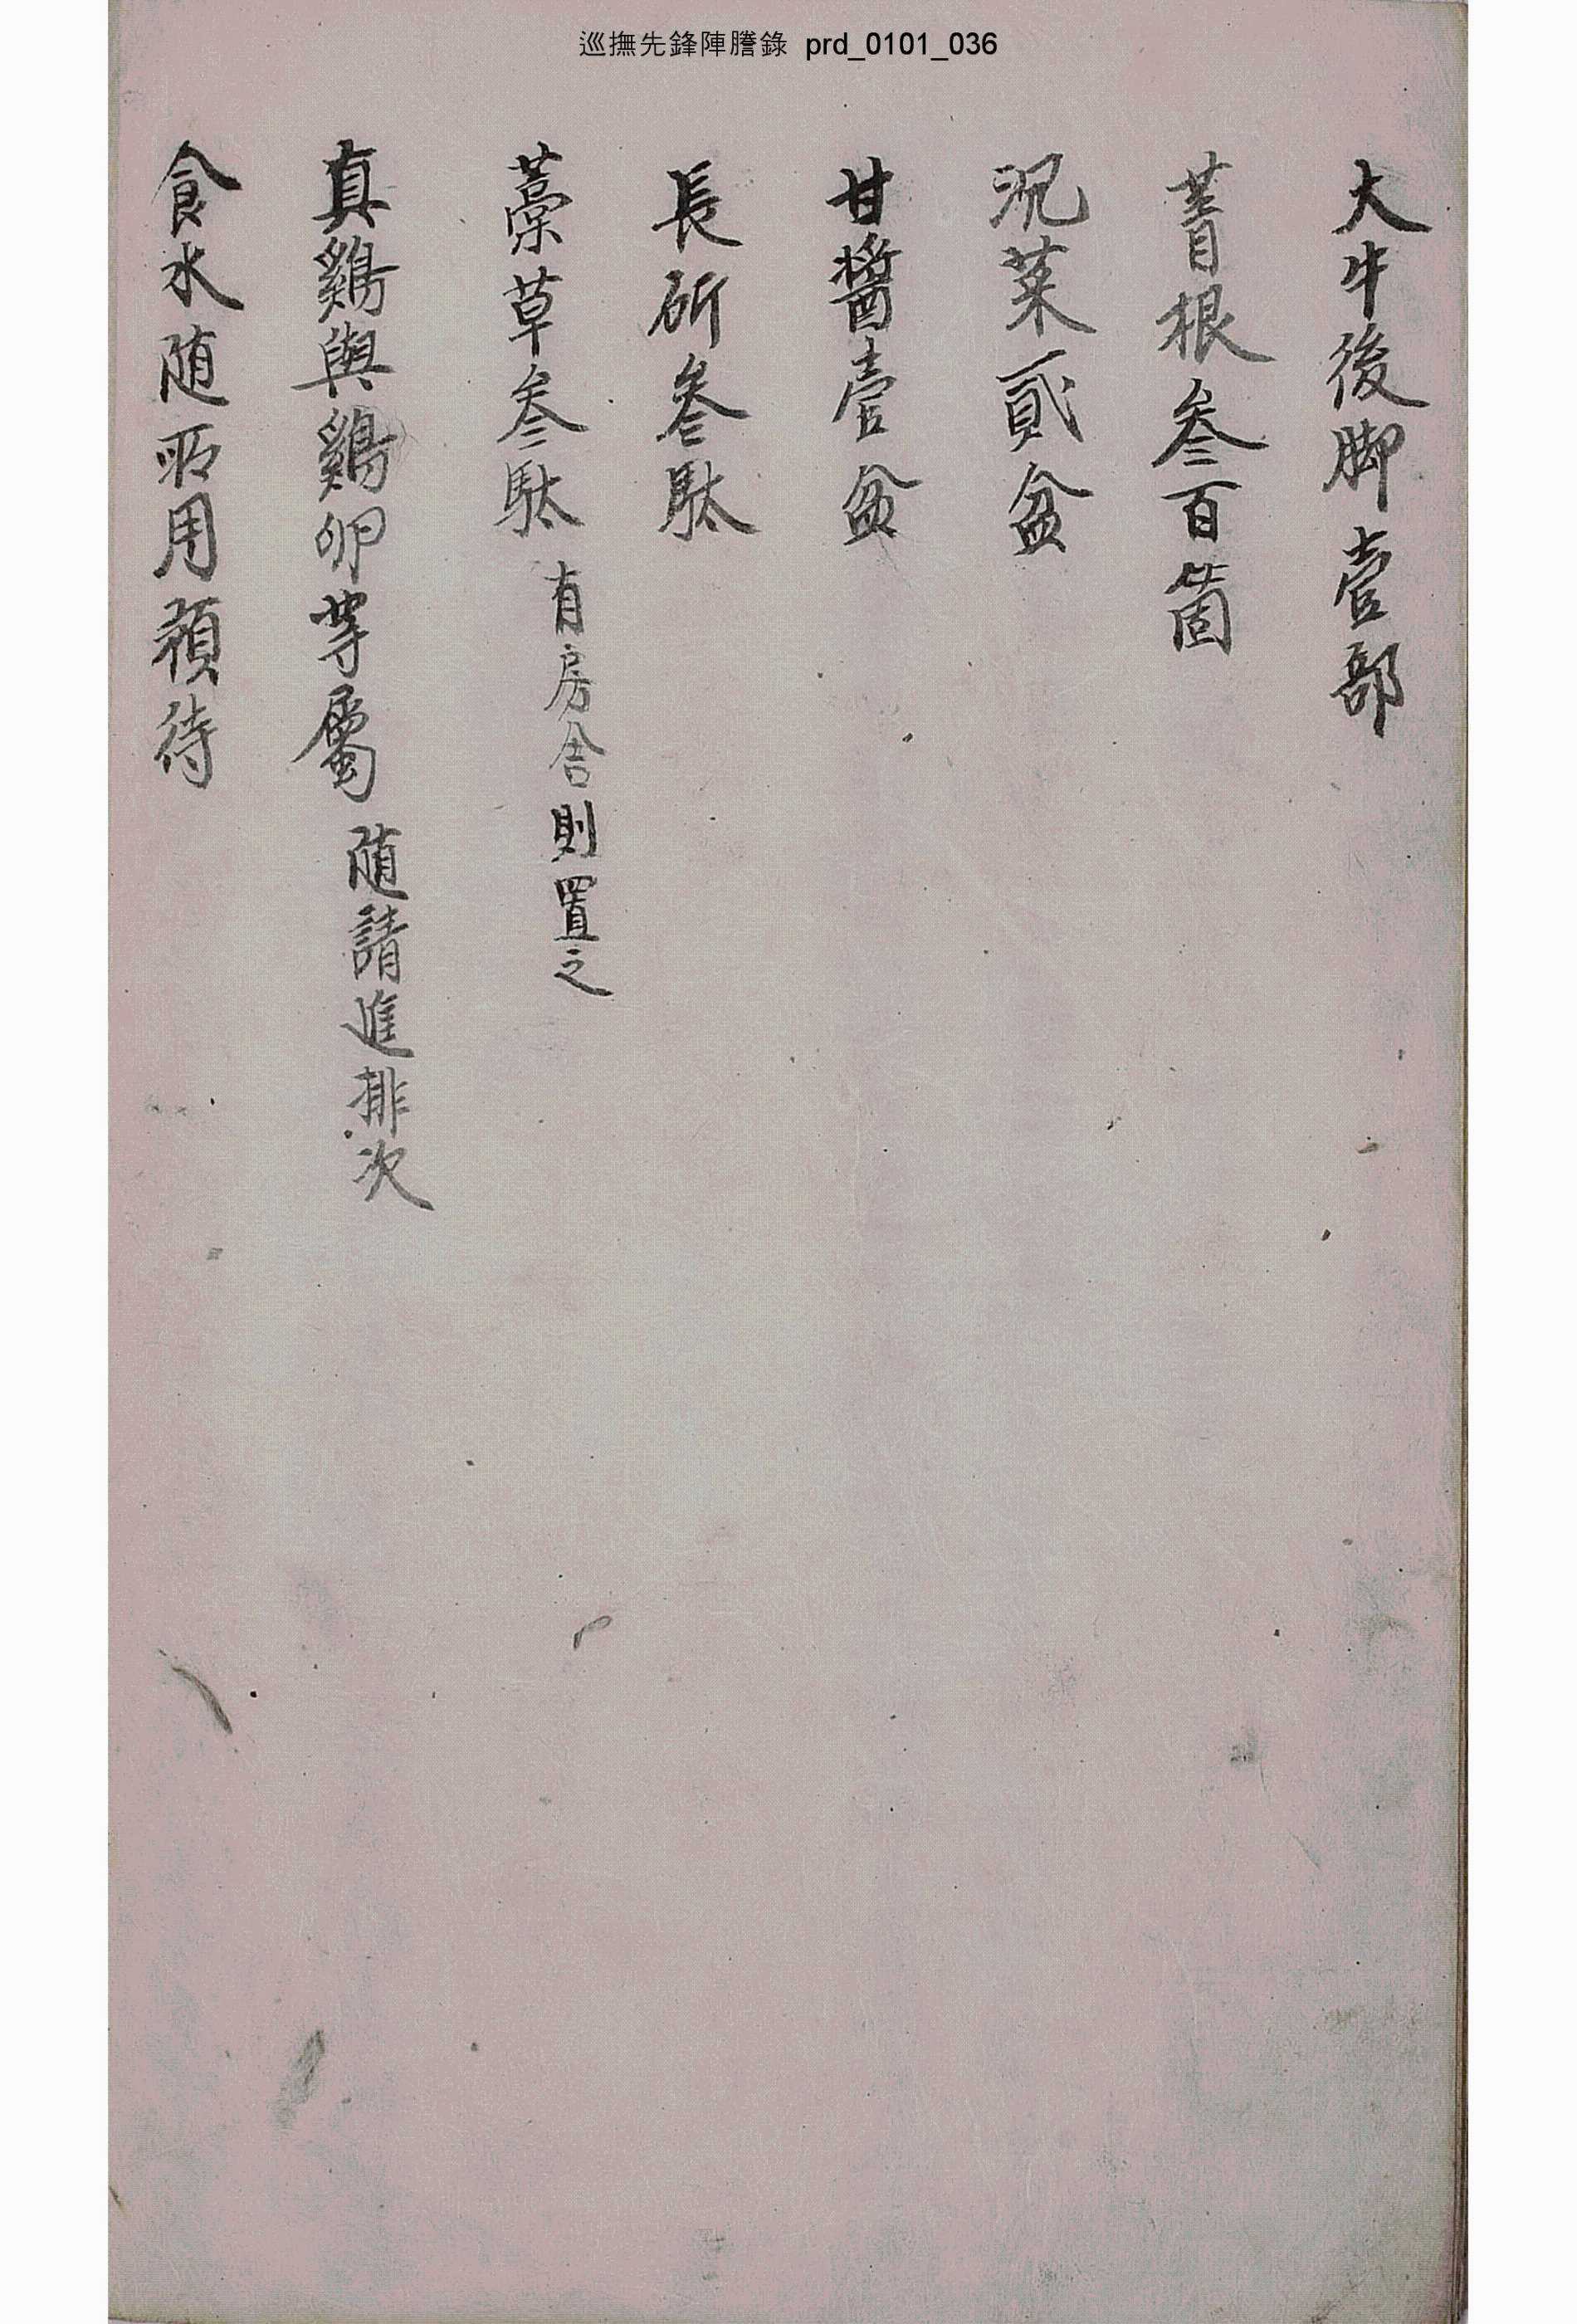 巡撫先鋒陣謄錄 prd_0101_036
大牛後脚壹部
菁根叁百箇
沉菜貳盆
甘醬壹盆
長斫叁駄
藁草叁駄 有房舍則置之
真鷄與鷄卵等屬 随請進排次
食水随所用預待